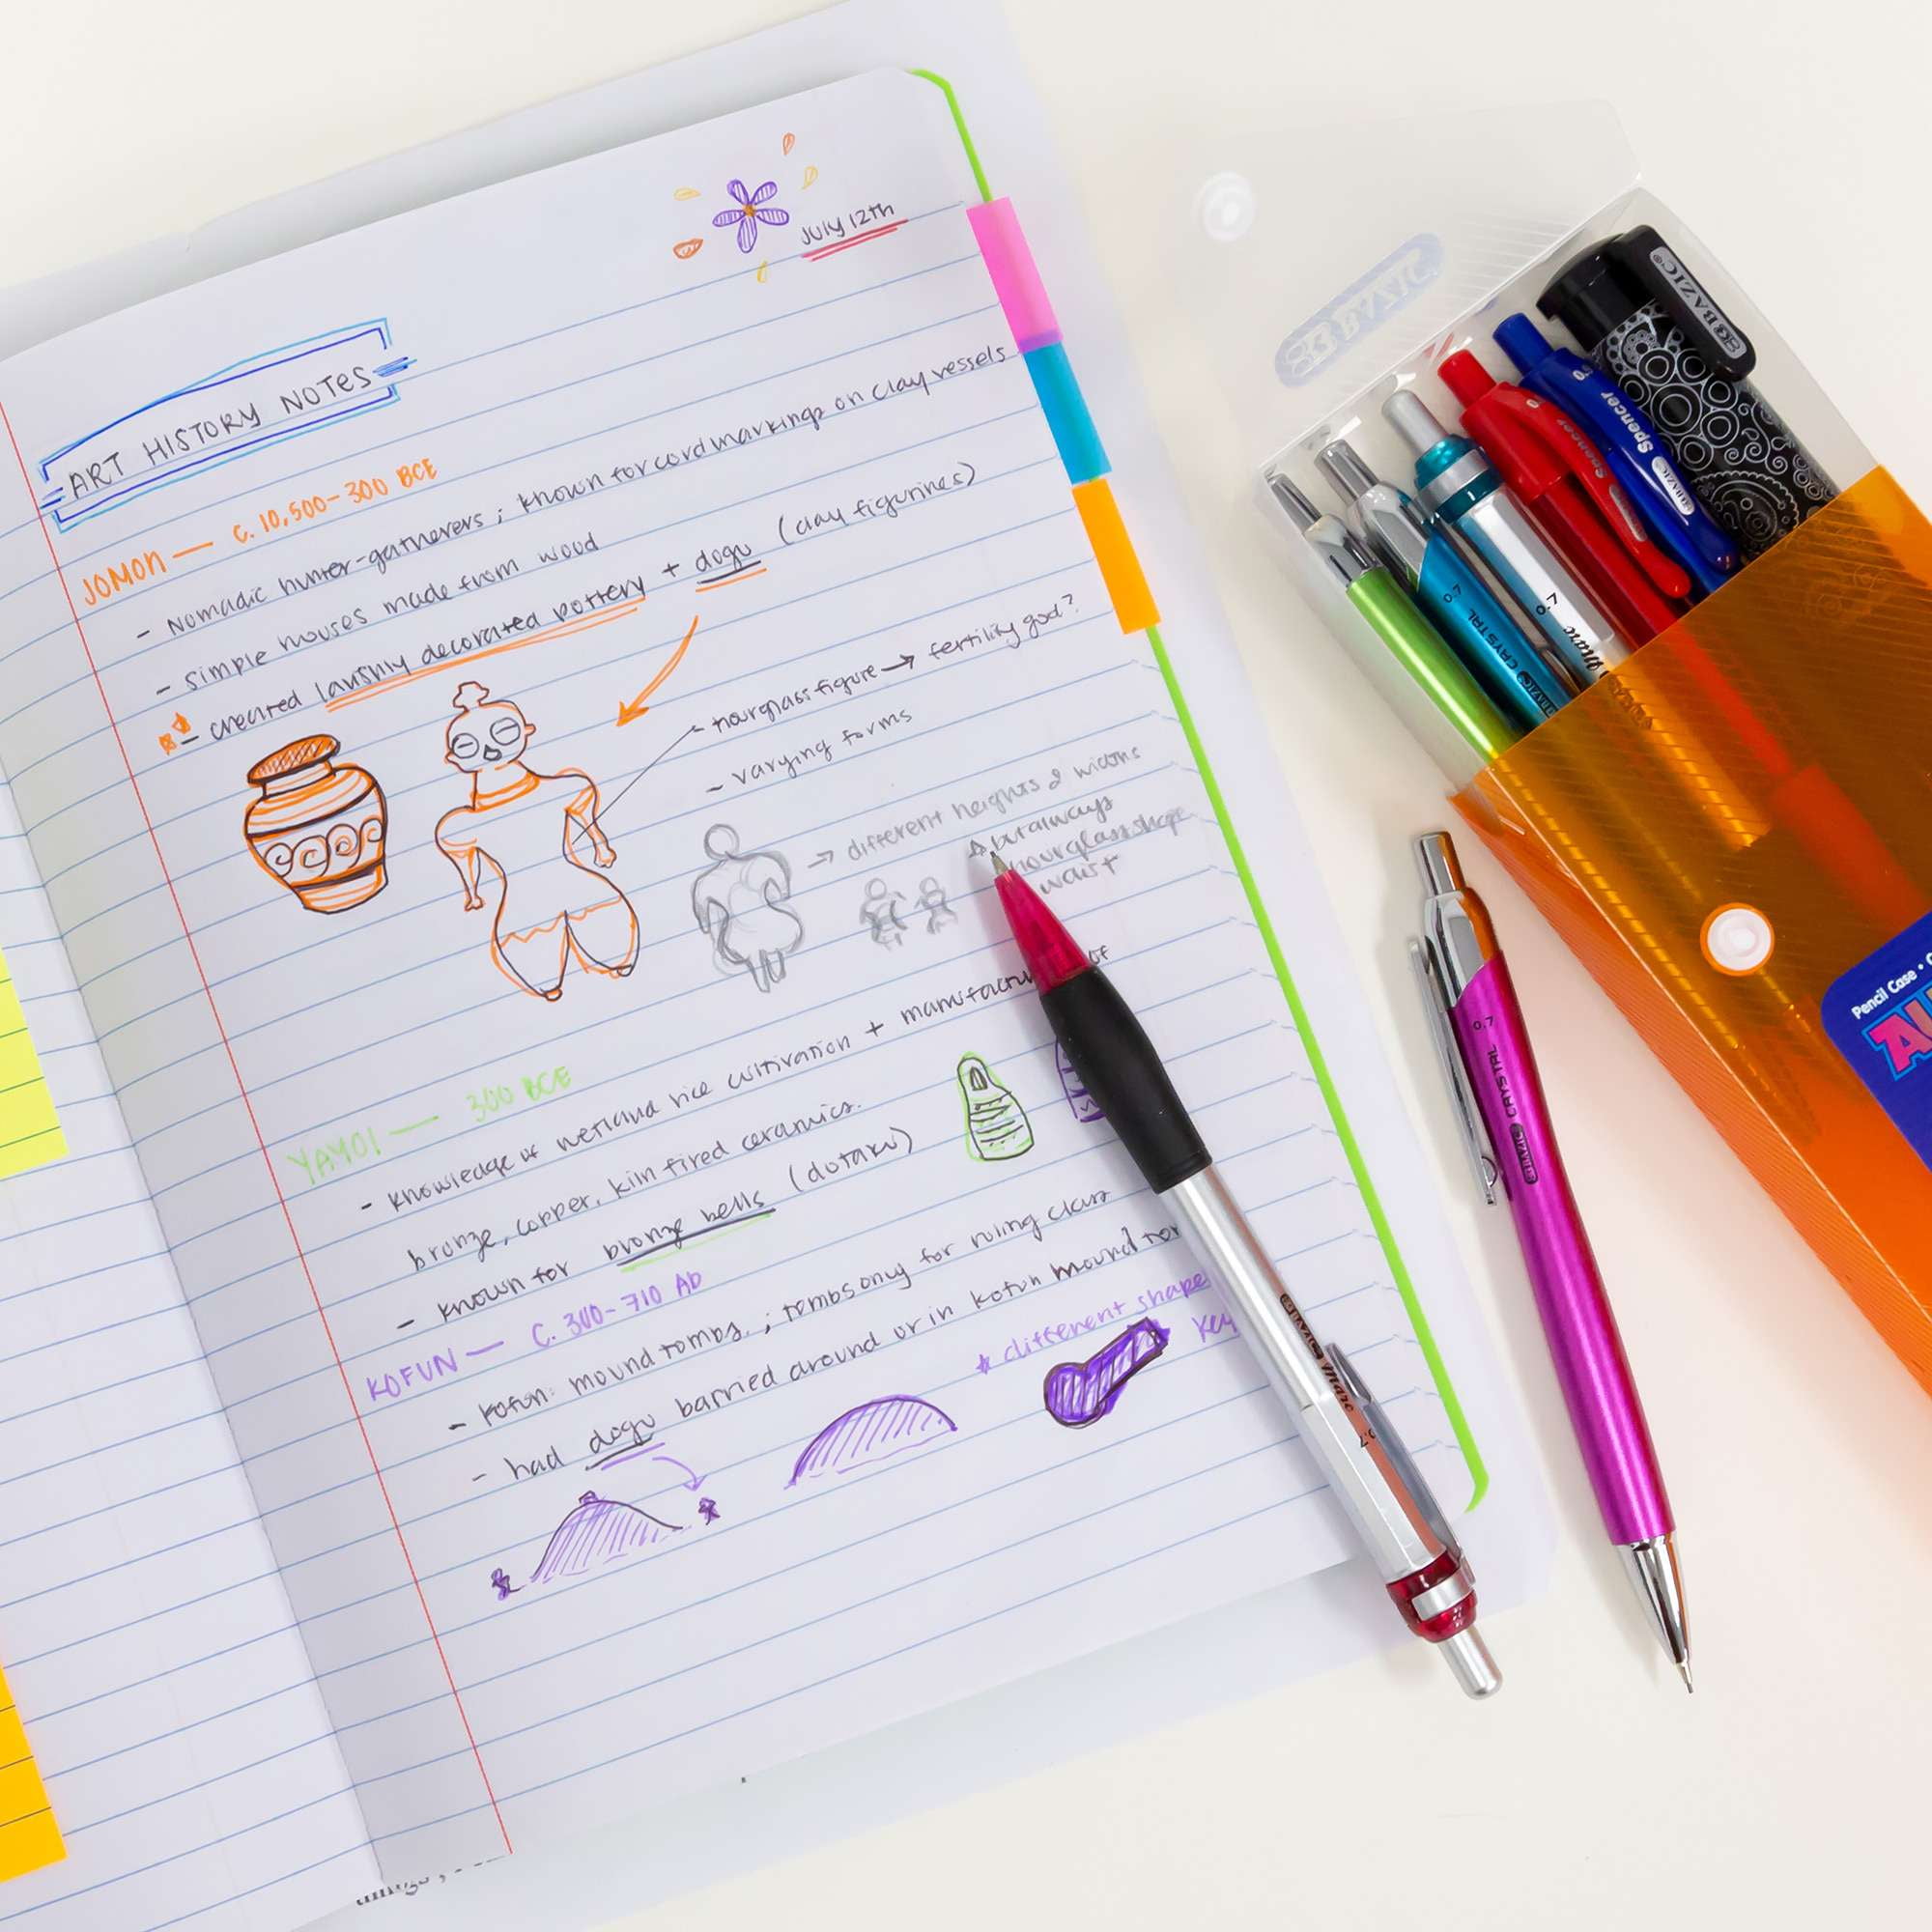 July 12th
ART HISTORY NOTES
JOMON — C. 10,500-300 BCE
- Nomadic hunter-gatherers ; known for cord markings on clay vessels
- simple houses made from wood
- created lavishly decorated pottery + dogu (clay figurines)
- hourglass figure → fertility god?
- varying forms
→ different heights & widths
but always
hourglass shape
waist
YAYOI — 300 BCE
- knowledge of wetland rice cultivation + manufactur of
bronze, copper, kiln fired ceramics.
- known for bronze bells (dotaku)
KOFUN — C. 300-710 AD
- kofun: mound tombs. ; tombs only for ruling class
- had dogu barried around or in kofun mound tom
* different shape
key
BAZIC
BAZIC
Spencer
BAZIC
Spencer
0.7
Marc
0.7
CRYSTAL
BAZIC
0.7
CRYSTAL
BAZIC
BAZIC
Marc
0.7
Pencil Case •